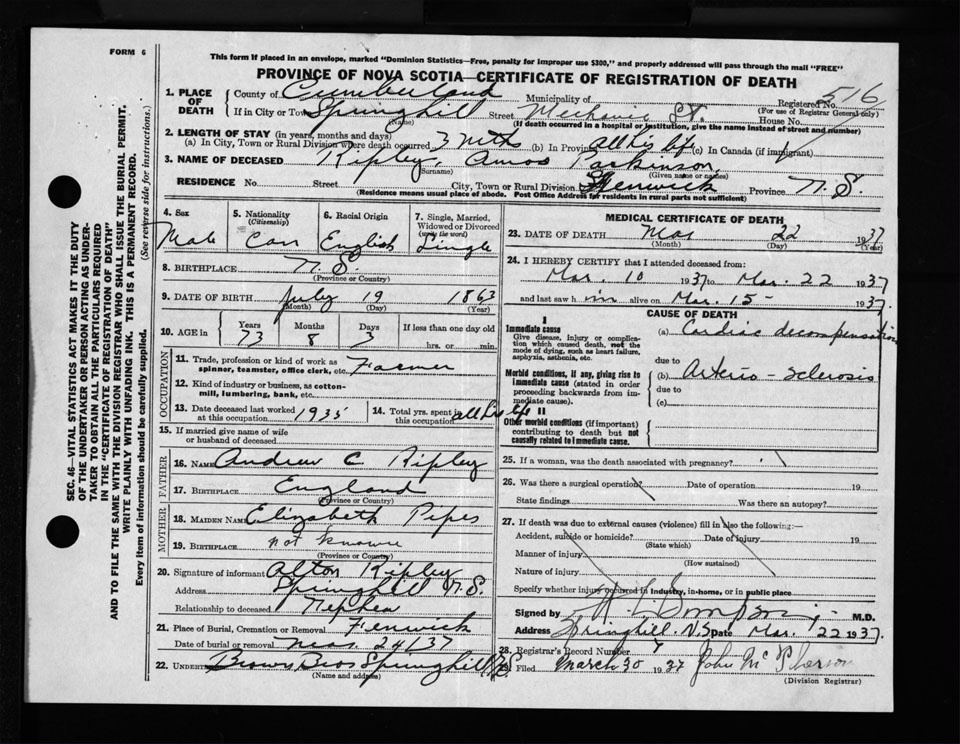 FORM 6
This form if placed in an envelope, marked "Dominion Statistics—Free, penalty for improper use $300," and properly addressed will pass through the mail "FREE"
PROVINCE OF NOVA SCOTIA—CERTIFICATE OF REGISTRATION OF DEATH
SEC. 46—VITAL STATISTICS ACT MAKES IT THE DUTY
OF THE UNDERTAKER OR PERSON ACTING AS UNDER-
TAKER TO OBTAIN ALL THE PARTICULARS REQUIRED
IN THE "CERTIFICATE OF REGISTRATION OF DEATH"
AND TO FILE THE SAME WITH THE DIVISION REGISTRAR WHO SHALL ISSUE THE BURIAL PERMIT.
WRITE PLAINLY WITH UNFADING INK. THIS IS A PERMANENT RECORD.
Every item of information should be carefully supplied. (See reverse side for instructions.)
1. PLACE OF DEATH
County of Cumberland Municipality of Registered No. 516
(For use of Registrar General only)
If in City or Town Springhill Street Mechanic St. House No.
(Name) (If death occurred in a hospital or institution, give the name instead of street and number)
2. LENGTH OF STAY (in years, months and days)
(a) In City, Town or Rural Division where death occurred 3 mths (b) In Province all his life (c) In Canada (if immigrant)
3. NAME OF DECEASED Ripley, Amos Parkinson
(Surname) (Given name or names)
RESIDENCE No. Street City, Town or Rural Division Fenwick Province N.S.
(Residence means usual place of abode. Post Office Address for residents in rural parts not sufficient)
4. Sex Male
5. Nationality (Citizenship) Can
6. Racial Origin English
7. Single, Married, Widowed or Divorced (write the word) Single
8. BIRTHPLACE N.S.
(Province or Country)
9. DATE OF BIRTH July 19 1863
(Month) (Day) (Year)
10. AGE in Years 73 Months 8 Days 3 If less than one day old hrs. or min.
OCCUPATION
11. Trade, profession or kind of work as spinner, teamster, office clerk, etc. Farmer
12. Kind of industry or business, as cotton-mill, lumbering, bank, etc.
13. Date deceased last worked at this occupation 1935
14. Total yrs. spent in this occupation all his life
15. If married give name of wife or husband of deceased
FATHER
16. NAME Andrew C. Ripley
17. BIRTHPLACE England
(Province or Country)
MOTHER
18. MAIDEN NAME Elizabeth Pipes
19. BIRTHPLACE not known
(Province or Country)
20. Signature of informant Alton Ripley
Address Springhill N.S.
Relationship to deceased Nephew
21. Place of Burial, Cremation or Removal Fenwick
Date of burial or removal Mar. 24/37
22. UNDERT Brown Bros Springhill N.S.
(Name and address)
MEDICAL CERTIFICATE OF DEATH
23. DATE OF DEATH Mar 22 1937
(Month) (Day) (Year)
24. I HEREBY CERTIFY that I attended deceased from:
Mar. 10 1937 to Mar. 22 1937
and last saw him alive on Mar. 15 - 1937.
CAUSE OF DEATH
I
Immediate cause
Give disease, injury or complication which caused death, not the mode of dying, such as heart failure, asphyxia, asthenia, etc.
(a) Cardiac decompensation
due to
Morbid conditions, if any, giving rise to immediate cause (stated in order proceeding backwards from immediate cause).
(b) Arterio-sclerosis
due to
(c)
II
Other morbid conditions (if important) contributing to death but not causally related to immediate cause.
25. If a woman, was the death associated with pregnancy?
26. Was there a surgical operation? Date of operation 19
State findings Was there an autopsy?
27. If death was due to external causes (violence) fill in also the following:—
Accident, suicide or homicide? Date of injury 19
(State which)
Manner of injury
(How sustained)
Nature of injury
Specify whether injury occurred in industry, in home, or in public place
Signed by Simpson M.D.
Address Springhill, N.S. Date Mar. 22 1937.
28. Registrar's Record Number
29. Filed March 30 1937 John McPherson
(Division Registrar)